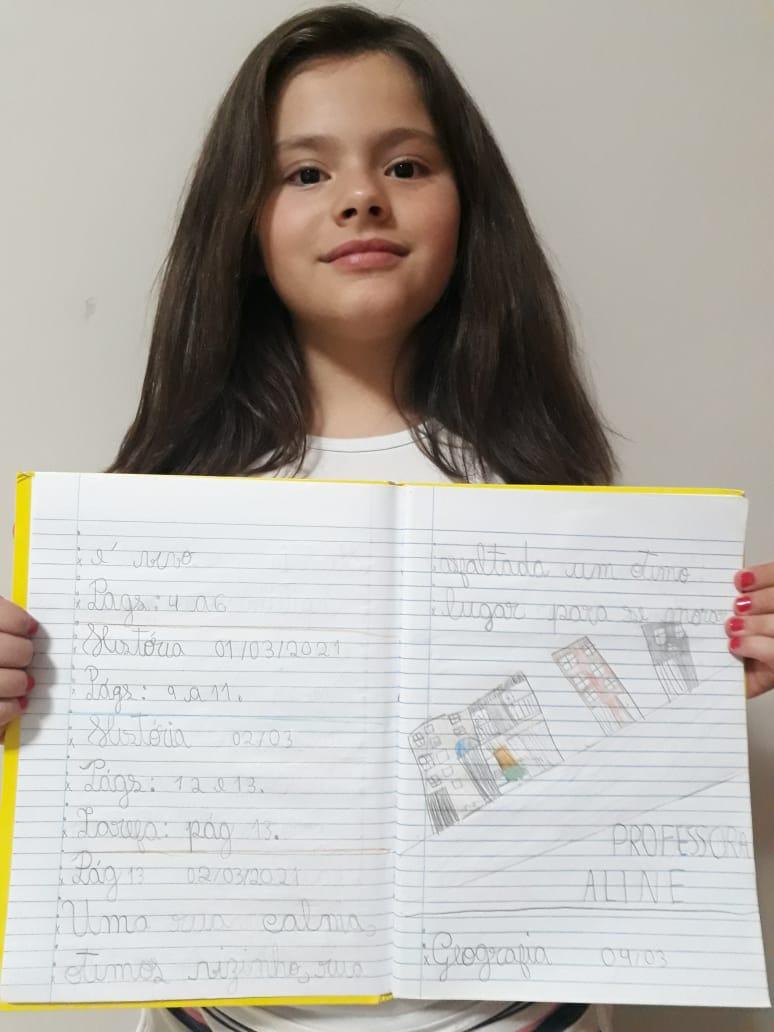 é vivo
Págs: 4 a 6
História 01/03/2021
Págs: 9 a 11.
História 02/03
Págs: 12 e 13.
Tarefa: pág 13.
Pág 13 02/03/2021
Uma rua calma,
otimos vizinho, rua
asfaltada um otimo
lugar para se mora
PROFESSORA
ALINE
Geografia 04/03